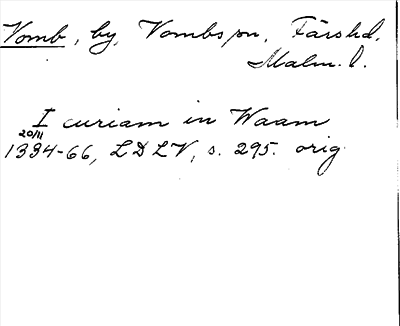 Vomb, by, Vombs sn, Färs hd,
Malm. l.
I curiam in Waam
20/11
1334-66, LDLV, s. 295. orig.